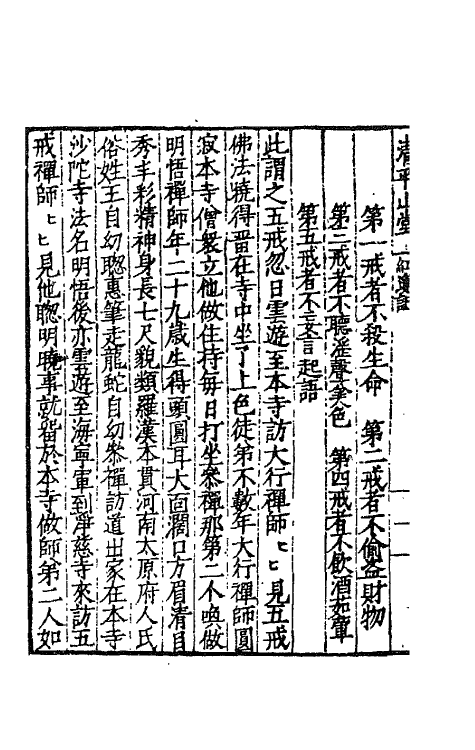 清平山堂 一紅蓮記
第一戒者不殺生命 第二戒者不偷盗財物
第三戒者不聽淫聲美色 第四戒者不飲酒茹葷
第五戒者不妄言起語
此謂之五戒忽日雲遊至本寺訪大行禪師〻〻見五戒
佛法曉得畱在寺中坐了上色徒弟不數年大行禪師圓
寂本寺僧衆立他做住持每日打坐叅禪那第二个喚做
明悟禪師年二十九歳生得頭圓耳大面濶口方眉清目
秀丰彩精神身長七尺貌類羅漢本貫河南太原府人氏
俗姓王自幼聰惠筆走龍蛇自幼叅禪訪道出家在本寺
沙陀寺法名明悟後亦雲遊至海寧軍到凈慈寺來訪五
戒禪師〻〻見他聰明曉事就畱於本寺做師第二人如